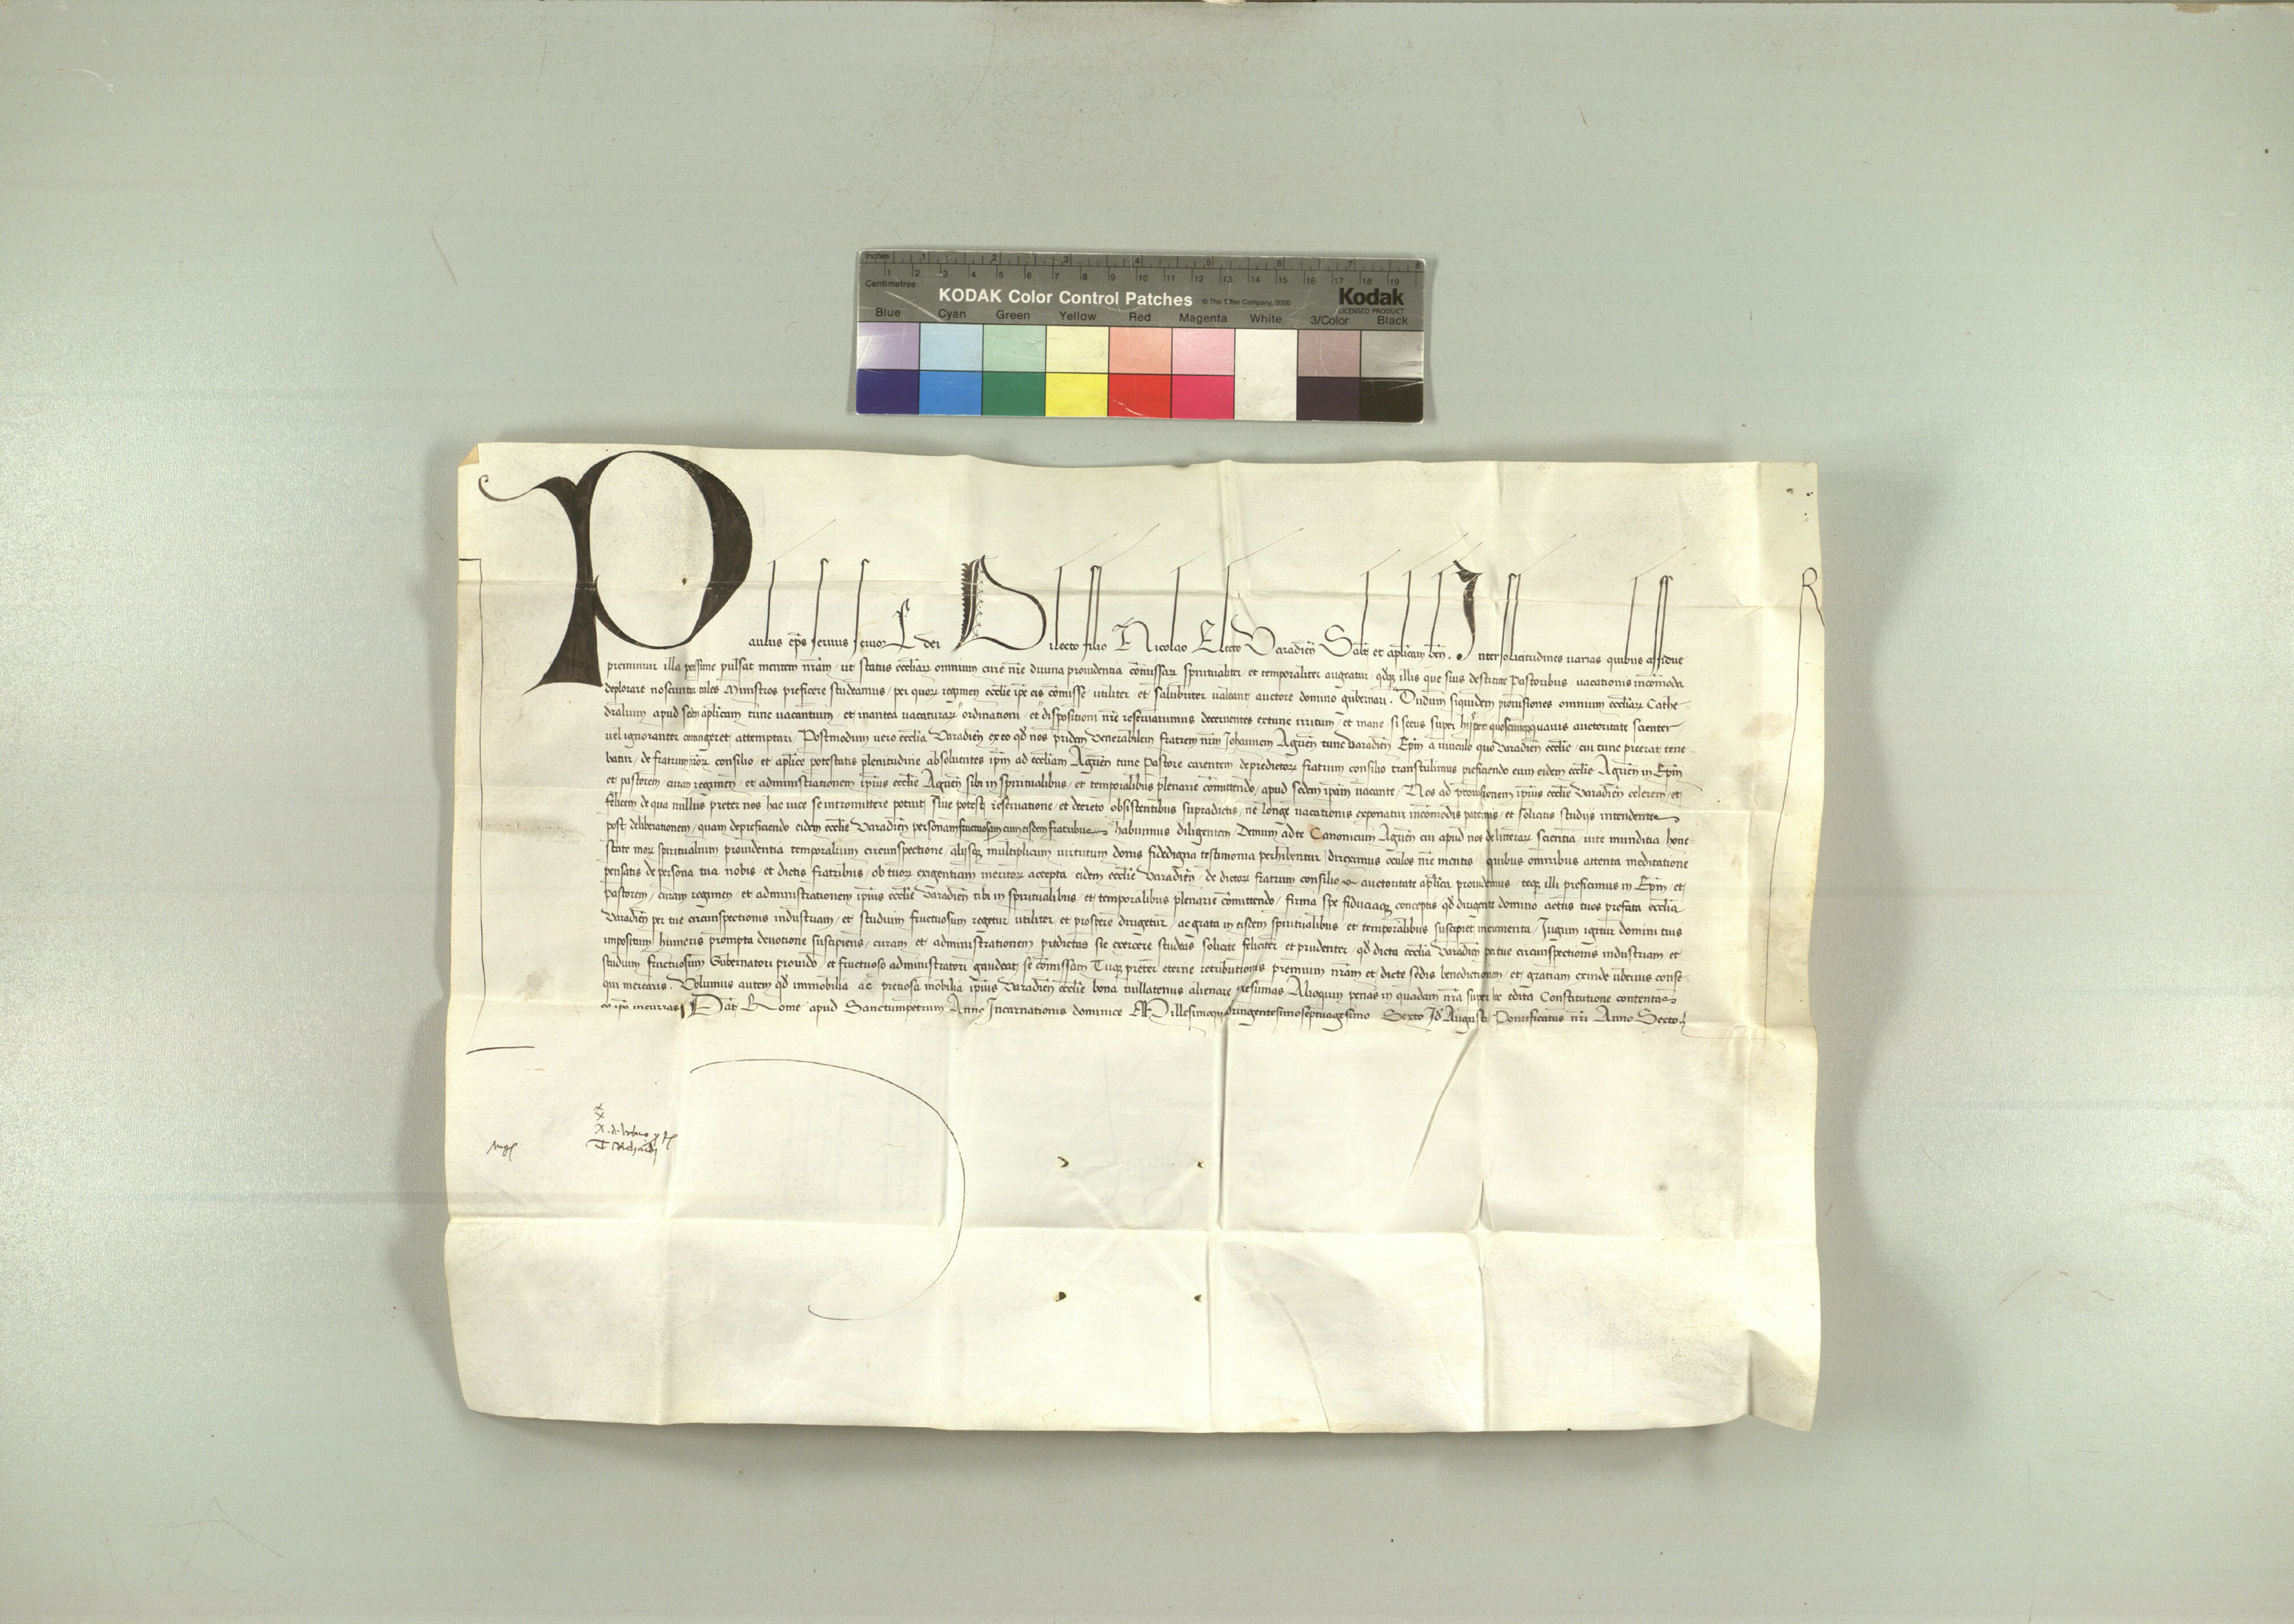 inches 1 2 3 4 5 6 7 8
1 2 3 4 5 6 7 8 9 10 11 12 13 14 15 16 17 18 19
Centimetres
KODAK Color Control Patches © The Tiffen Company, 2000 Kodak
LICENSED PRODUCT
Blue Cyan Green Yellow Red Magenta White 3/Color Black
R
Paulus ep̄s servus servoꝝ dei Dilecto filio Nicolao Electo Varadien̄ Salt̄ et aplicam ben̄. Inter solicitudines varias quibus assidue
premimur illa potissime pulsat mentem nr̄am, ut status ecclīaꝝ omnium cure nr̄e divina providentia cōmissaꝝ spiritualiter et temporaliter augeatur, qđqꝫ illis que suis destitute Pastoribus vacationis incōmoda
deplorare noscuntur tales Ministros preficere studeamus, per quoꝝ regimen ecclīe ip̄e eis cōmisse utiliter et salubriter valeant auctore domino gubernari. Dudum siquidem provisiones omnium ecclīaꝝ Cathe-
dralium apud sedem aplicam tunc vacantium et inantea vacaturaꝝ ordinationi et dispositioni nr̄e reservavimus decernentes extunc irritum et inane si secus super hijs per quoscumqꝫ quavis auctoritate scienter
vel ignoranter contingeret attemptari. Postmodum vero ecclīa Varadien̄ ex eo qđ nos pridem Venerabilem fratrem nr̄m Johannem Agrien̄ tunc Varadien̄ Ep̄m a vinculo quo Varadien̄ ecclīe, cui tunc preerat tene-
batur, de fratrum nr̄oꝝ consilio, et aplice potestatis plenitudine absolventes ip̄m ad ecclīam Agrien̄ tunc Pastore carentem de predictoꝝ fratrum consilio transtulimus preficiendo eum eidem ecclīe Agrien̄ in Ep̄m
et pastorem, curam regimen, et administrationem ip̄ius ecclīe Agrien̄ sibi in spiritualibus, et temporalibus plenarie cōmittendo, apud sedem ip̄am vacante, Nos ad provisionem ip̄ius ecclīe Varadien̄ celerem, et
felicem de qua nullus preter nos hac vice se intromittere potuit sive potest reservatione, et decreto obsistentibus supradictis, ne longe vacationis exponatur incōmodis paternis, et solicitis studijs intendentes
post deliberationem, quam de preficiendo eidem ecclīe Varadien̄ personam fructuosam cum eisdem fratribus habuimus diligentem, Demum ad te Canonicum Agrien̄ cui apud nos de litteraꝝ scientia, vite munditia hone-
state moꝝ spiritualium providentia temporalium circunspectione, alijsqꝫ multiplicum virtutum donis fidedigna testimonia perhibentur, direximus oculos nr̄e mentis, quibus omnibus attenta meditatione
pensatis de persona tua nobis, et dictis fratribus, ob tuoꝝ exigentiam meritoꝝ accepta, eidem ecclīe Varadien̄, de dictoꝝ fratrum consilio auctoritate aplica providemus, teqꝫ illi preficimus in Ep̄m, et
Pastorem, curam regimen, et administrationem ip̄ius ecclīe Varadien̄ tibi in spiritualibus, et temporalibus plenarie cōmittendo, firma spe fiduciaqꝫ conceptis qđ dirigente domino actus tuos prefata ecclīa
Varadien̄ per tue circunspectionis industriam, et studium fructuosum regetur utiliter et prospere dirigetur, ac grata in eisdem spiritualibus, et temporalibus suscipiet incrementa, Jugum igitur domini tuis
impositum humeris prompta devotione suscipiens, curam et administrationem predictas sic exercere studeas solicite feliciter et prudenter, qđ dicta ecclīa Varadien̄ per tue circunspectionis industriam et
studium fructuosum Gubernatori provido, et fructuoso administratori gaudeat se cōmissam Tuqꝫ preter eterne retributionis premium nr̄am et dicte sedis benedictionem, et gratiam exinde uberius conse-
qui merearis. Volumus autem qđ immobilia ac pretiosa mobilia ip̄ius Varadien̄ ecclīe bona nullatenus alienare presumas Alioquin penas in quadam nr̄a super hoc edita Constitutione contentas
eo ip̄o incurras. Dat̄ Rome apud Sanctumpetrum Anno Incarnationis dominice Millesimoquadringentesimoseptuagesimo Sexto Id̄ Augusti Pontificatus nr̄i Anno Sexto.